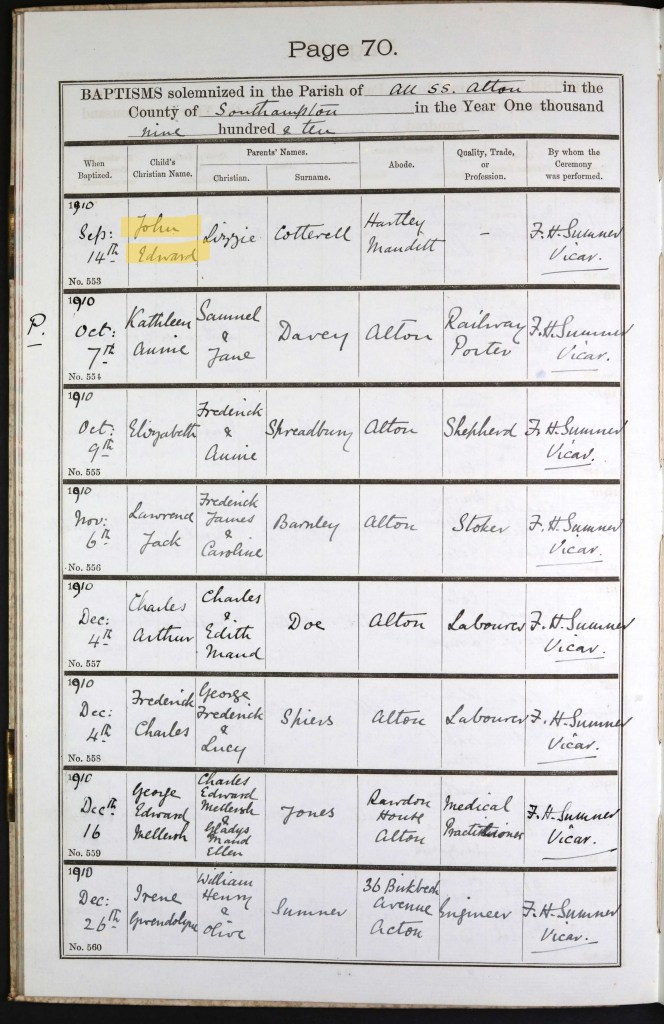 Page 70.
BAPTISMS solemnized in the Parish of All SS. Alton in the
County of Southampton in the Year One thousand
nine hundred & ten
When Baptized. Child's Christian Name. Parents' Names. Christian. Surname. Abode. Quality, Trade, or Profession. By whom the Ceremony was performed.
1910
Sep: 14th John Edward Lizzie Cotterell Hartley Mauditt – F. H. Sumner Vicar.
No. 553
P. 1910
Oct: 7th Kathleen Annie Samuel & Jane Davey Alton Railway Porter F. H. Sumner Vicar.
No. 554
1910
Oct: 9th Elizabeth Frederick & Annie Spreadbury Alton Shepherd F. H. Sumner Vicar.
No. 555
1910
Nov: 6th Lawrence Jack Frederick James & Caroline Barnley Alton Stoker F. H. Sumner Vicar.
No. 556
1910
Dec: 4th Charles Arthur Charles & Edith Maud Doe Alton Labourer F. H. Sumner Vicar.
No. 557
1910
Dec: 4th Frederick Charles George Frederick & Lucy Spiers Alton Labourer F. H. Sumner Vicar.
No. 558
1910
Decth 16 George Edward Mellersh Charles Edward Mellersh & Gladys Maud Ellen Jones Rawdon House Alton Medical Practitioner F. H. Sumner Vicar.
No. 559
1910
Dec: 26th Irene Gwendolyne William Henry & Olive Sumner 36 Birkbeck Avenue Acton Engineer F. H. Sumner Vicar.
No. 560